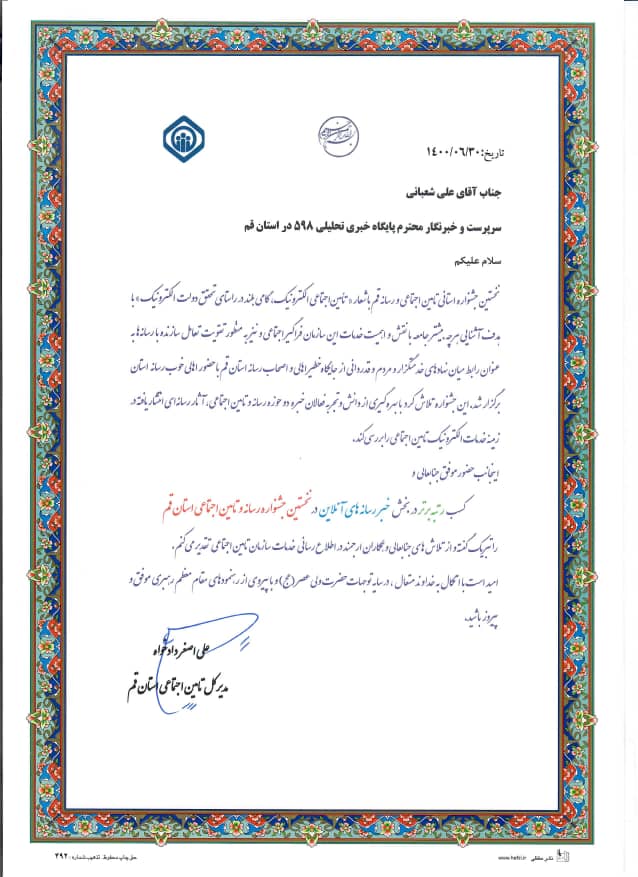 تاریخ: ۱۴۰۰/۰۶/۳۰
جناب آقای علی شعبانی
سرپرست و خبرنگار محترم پایگاه خبری تحلیلی ۵۹۸ در استان قم
سلام علیکم
نخستین جشنواره استانی تامین اجتماعی و رسانه قم با شعار «تامین اجتماعی الکترونیک، گامی بلند در راستای تحقق دولت الکترونیک» با
هدف آشنایی هرچه بیشتر جامعه با نقش و اهمیت خدمات این سازمان فراگیر اجتماعی و نیز به منظور تقویت تعامل سازنده با رسانه‌ها به
عنوان رابط میان نهادهای خدمتگزار و مردم و قدردانی از جایگاه خطیر اهالی و اصحاب رسانه استان قم با حضور اهالی خوب رسانه استان
برگزار شد. این جشنواره تلاش کرد با بهره گیری از دانش و تجربه فعالان خبره دو حوزه رسانه و تامین اجتماعی، آثار رسانه‌ای انتشار یافته در
زمینه خدمات الکترونیک تامین اجتماعی را بررسی کند.
اینجانب حضور موفق جنابعالی و
کسب رتبه برتر در بخش خبر رسانه های آنلاین در نخستین جشنواره رسانه و تامین اجتماعی استان قم
را تبریک گفته و از تلاش های جنابعالی و همکاران ارجمند در اطلاع رسانی خدمات سازمان تامین اجتماعی تقدیر می کنم.
امید است با اتکال به خداوند متعال، در سایه توجهات حضرت ولی عصر (عج) و با پیروی از رهنمودهای مقام معظم رهبری موفق و
پیروز باشید.
علی اصغر دادخواه
مدیرکل تامین اجتماعی استان قم
نشر هافظی www.hafzi.ir
حق چاپ محفوظ. تذهیب شماره: ۲۹۲